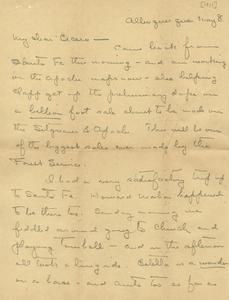 [1911]
Albuquerque May 8
My dear Cicero -
Came back from
Santa Fe this morning - and am working
on the Apache maps now - also helping
Clapp get up the preliminary dope on
a billion foot sale about to be made on
the Sitgreaves & Apache. This will be one
of the biggest sales ever made by the
Forest Service.
I had a very satisfactory trip up
to Santa Fe. Howard Waha happened
to be there too. Sunday morning we
fiddled around going to Church and
playing Tennis - and in the afternoon
all took a long ride. Estella is a wonder
on a horse - and Anita too as far as